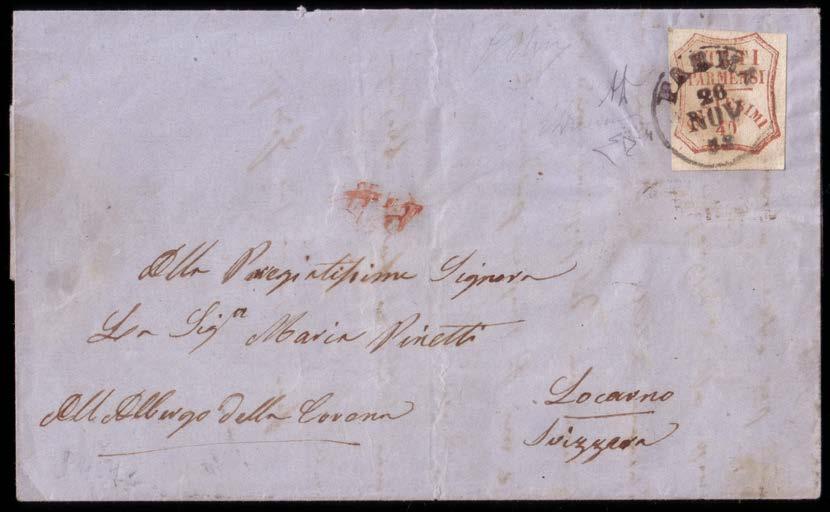 STATI
PARMENSI
CENTESIMI
40
PARMA
26
NOV
Alla Pregiatissima Signora
La Sig.ra Maria Pinetti
All Albergo della Corona
Locarno
Svizzera